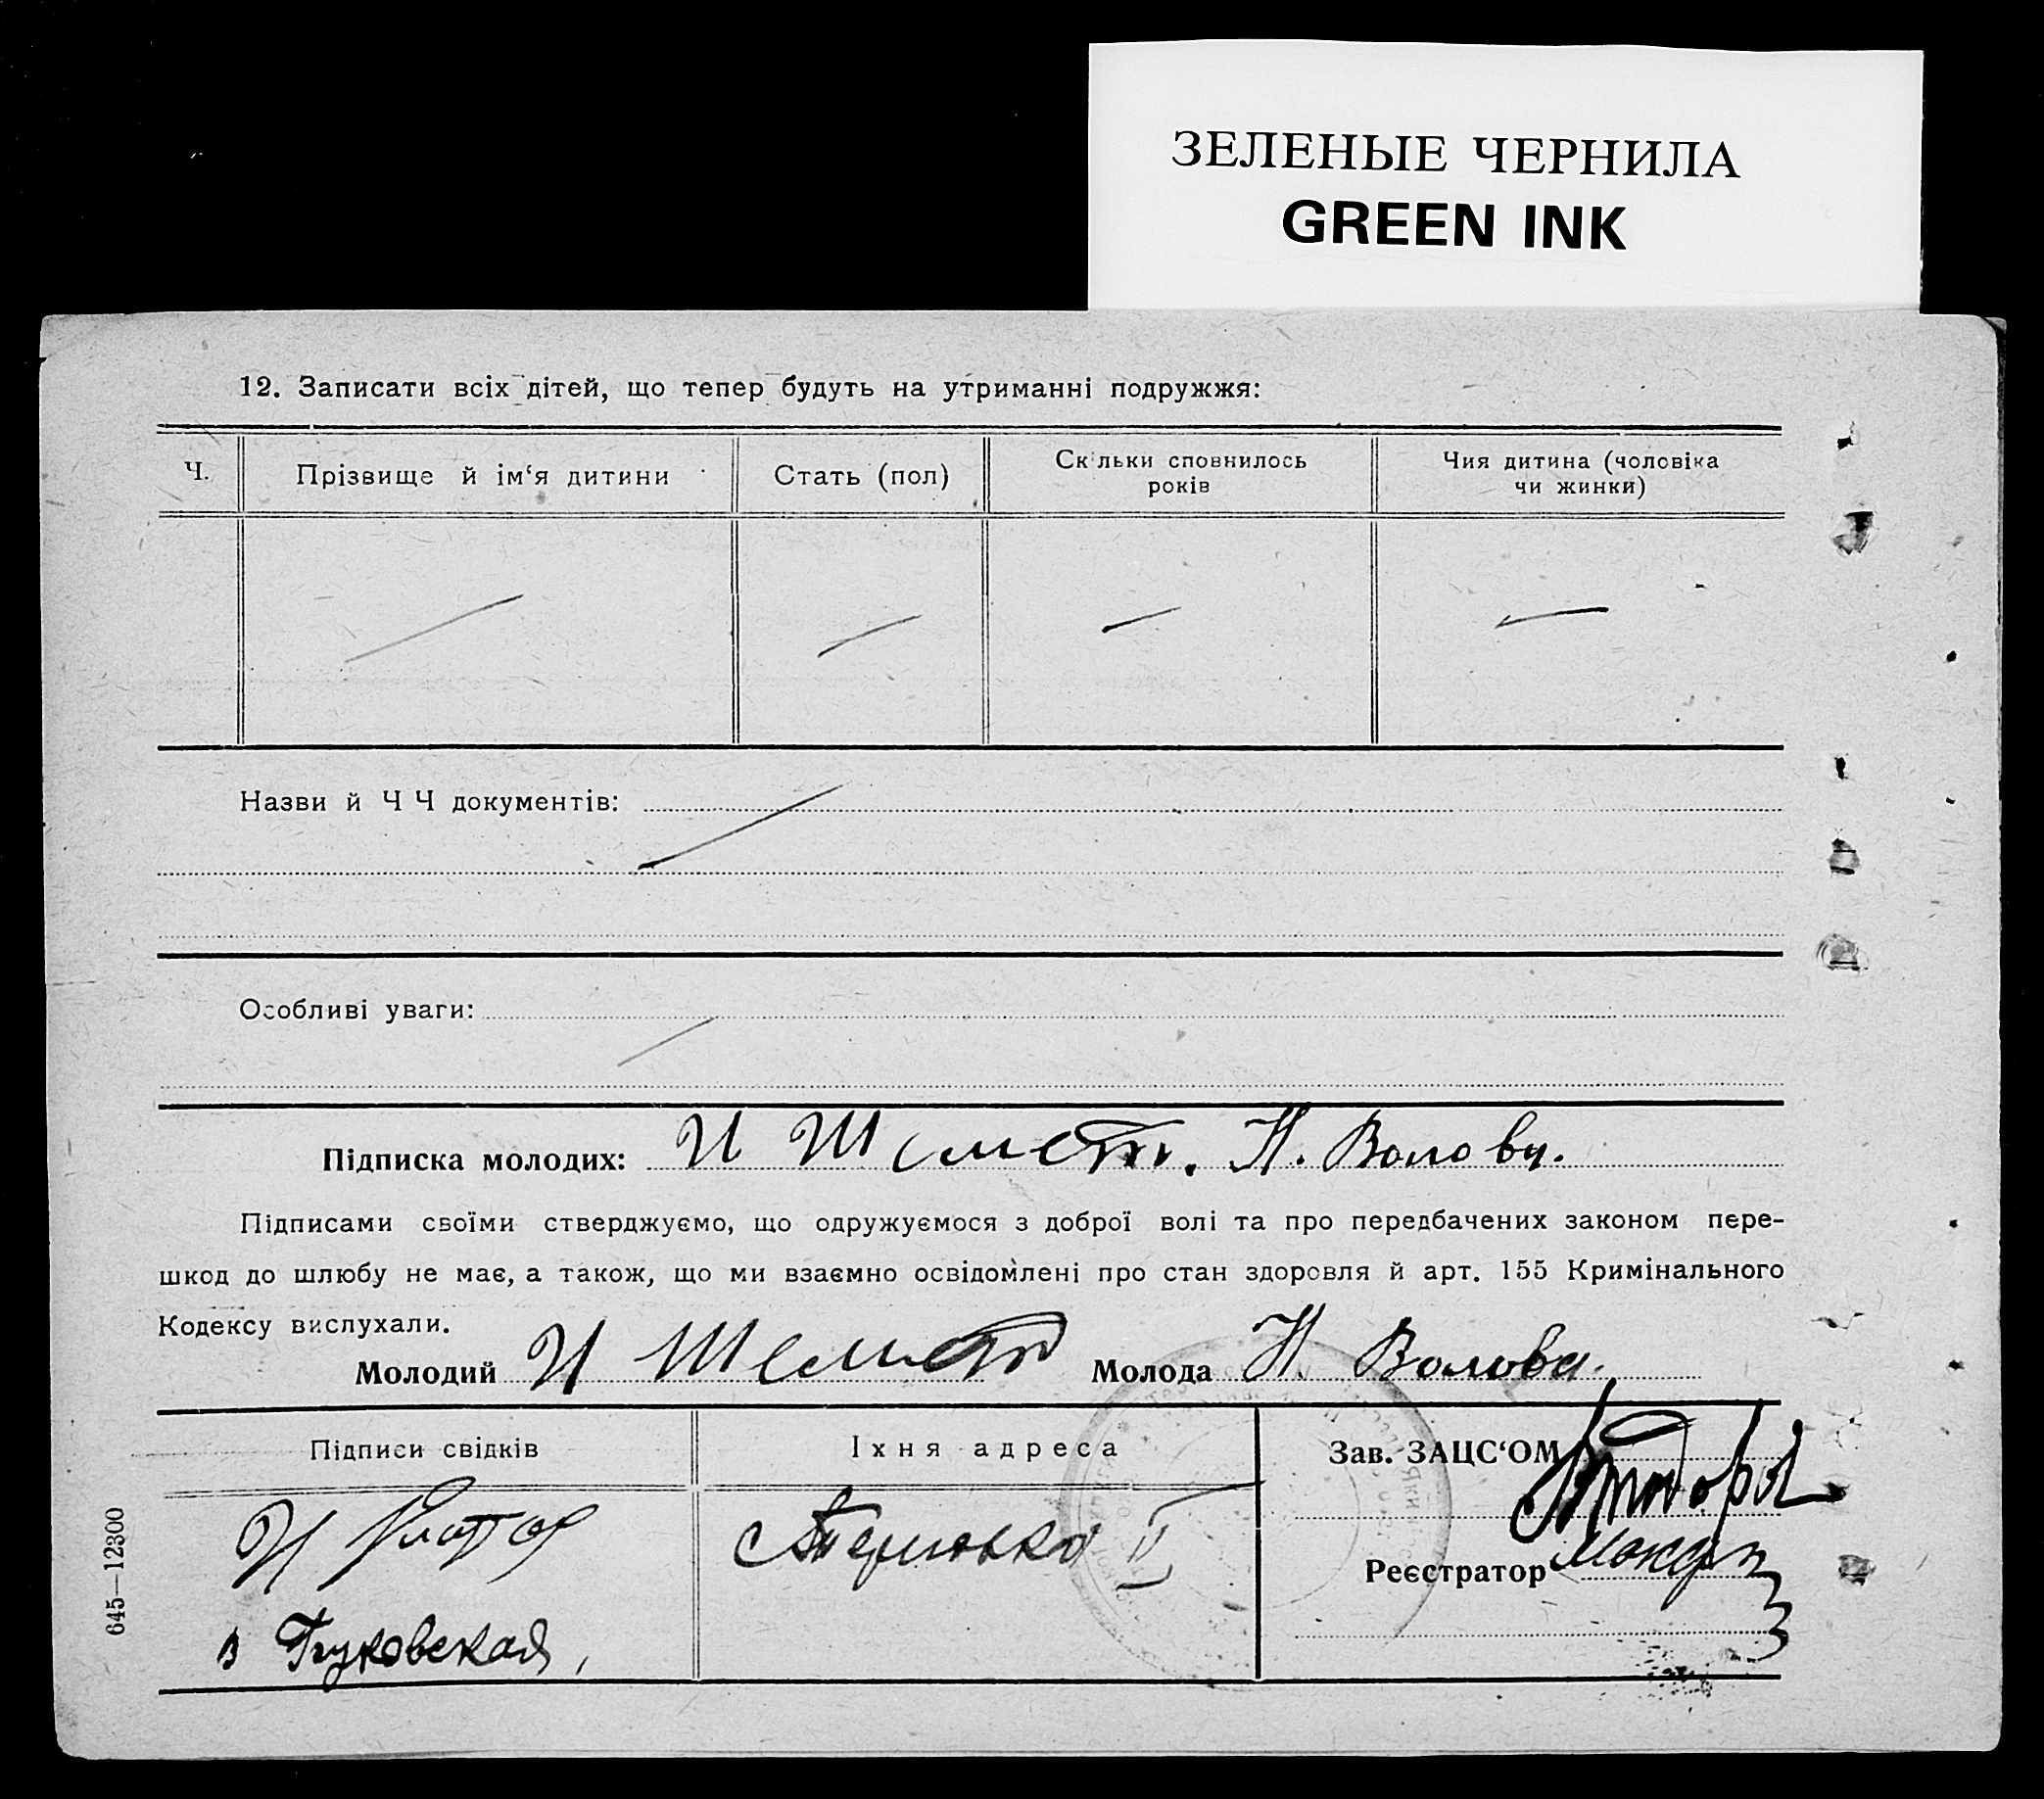 ЗЕЛЕНЫЕ ЧЕРНИЛА
GREEN INK
12. Записати всіх дітей, що тепер будуть на утриманні подружжя:
Ч.
Прізвище й ім‘я дитини
Стать (пол)
Скільки сповнилось
років
Чия дитина (чоловіка
чи жинки)
Назви й Ч Ч документів:
Особливі уваги:
Підписка молодих: И Шемет. Н. Волова.
Підписами своїми стверджуємо, що одружуємося з доброї волі та про передбачених законом пере-
шкод до шлюбу не має, а також, що ми взаємно освідомлені про стан здоровля й арт. 155 Кримінального
Кодексу вислухали.
Молодий И Шемет Молода Н. Волова.
Підписи свідків
Їхня адреса
Зав. ЗАЦС‘ОМ
И
Реєстратор
в Гуковская,
645—12300